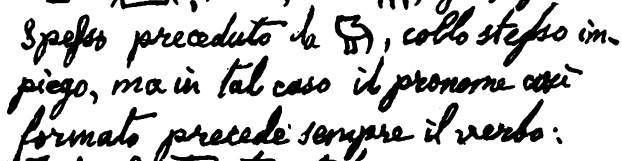 Spesso preceduto da 𓅮, collo stesso im-
piego, ma in tal caso il pronome così
formato precede sempre il verbo: